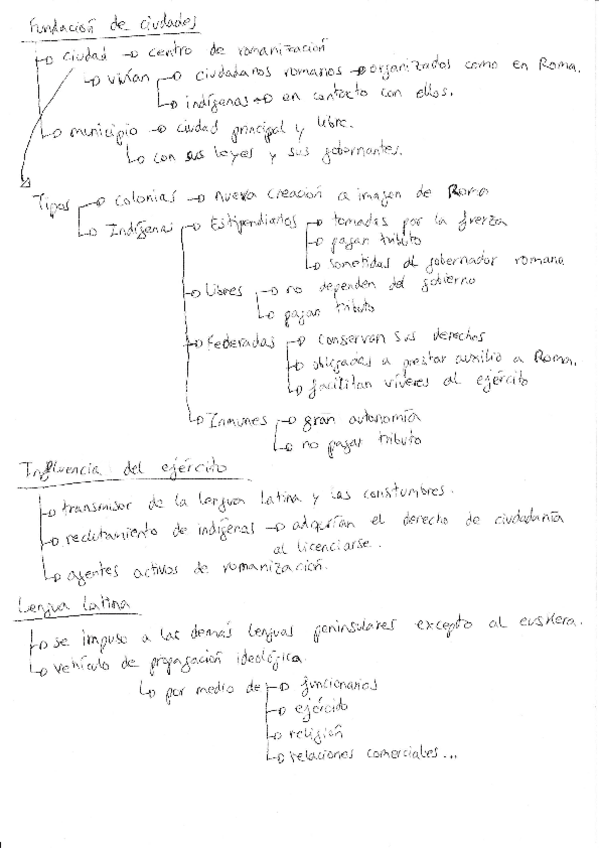 Fundación de ciudades
ciudad → centro de romanización
vivían → ciudadanos romanos → organizados como en Roma.
→ indígenas → en contacto con ellos.
municipio → ciudad principal y libre.
→ con sus leyes y sus gobernantes.
Tipos → colonias → nueva creación a imagen de Roma
→ Indígenas → Estipendiarias → tomadas por la fuerza
→ pagan tributo
→ sometidas al gobernador romano
→ Libres → no dependen del gobierno
→ pagan tributo
→ Federadas → conservan sus derechos
→ obligadas a prestar auxilio a Roma.
→ facilitan víveres al ejército
→ Inmunes → gran autonomía
→ no pagar tributo
Influencia del ejército
→ transmisor de la lengua latina y las constumbres.
→ reclutamiento de indígenas → adquirían el derecho de ciudadanía
al licenciarse.
→ agentes activos de romanización.
Lengua Latina
→ se impuso a las demás lenguas peninsulares excepto al euskera.
→ vehículo de propagación ideológica.
→ por medio de → funcionarios
→ ejército
→ religión
→ relaciones comerciales...